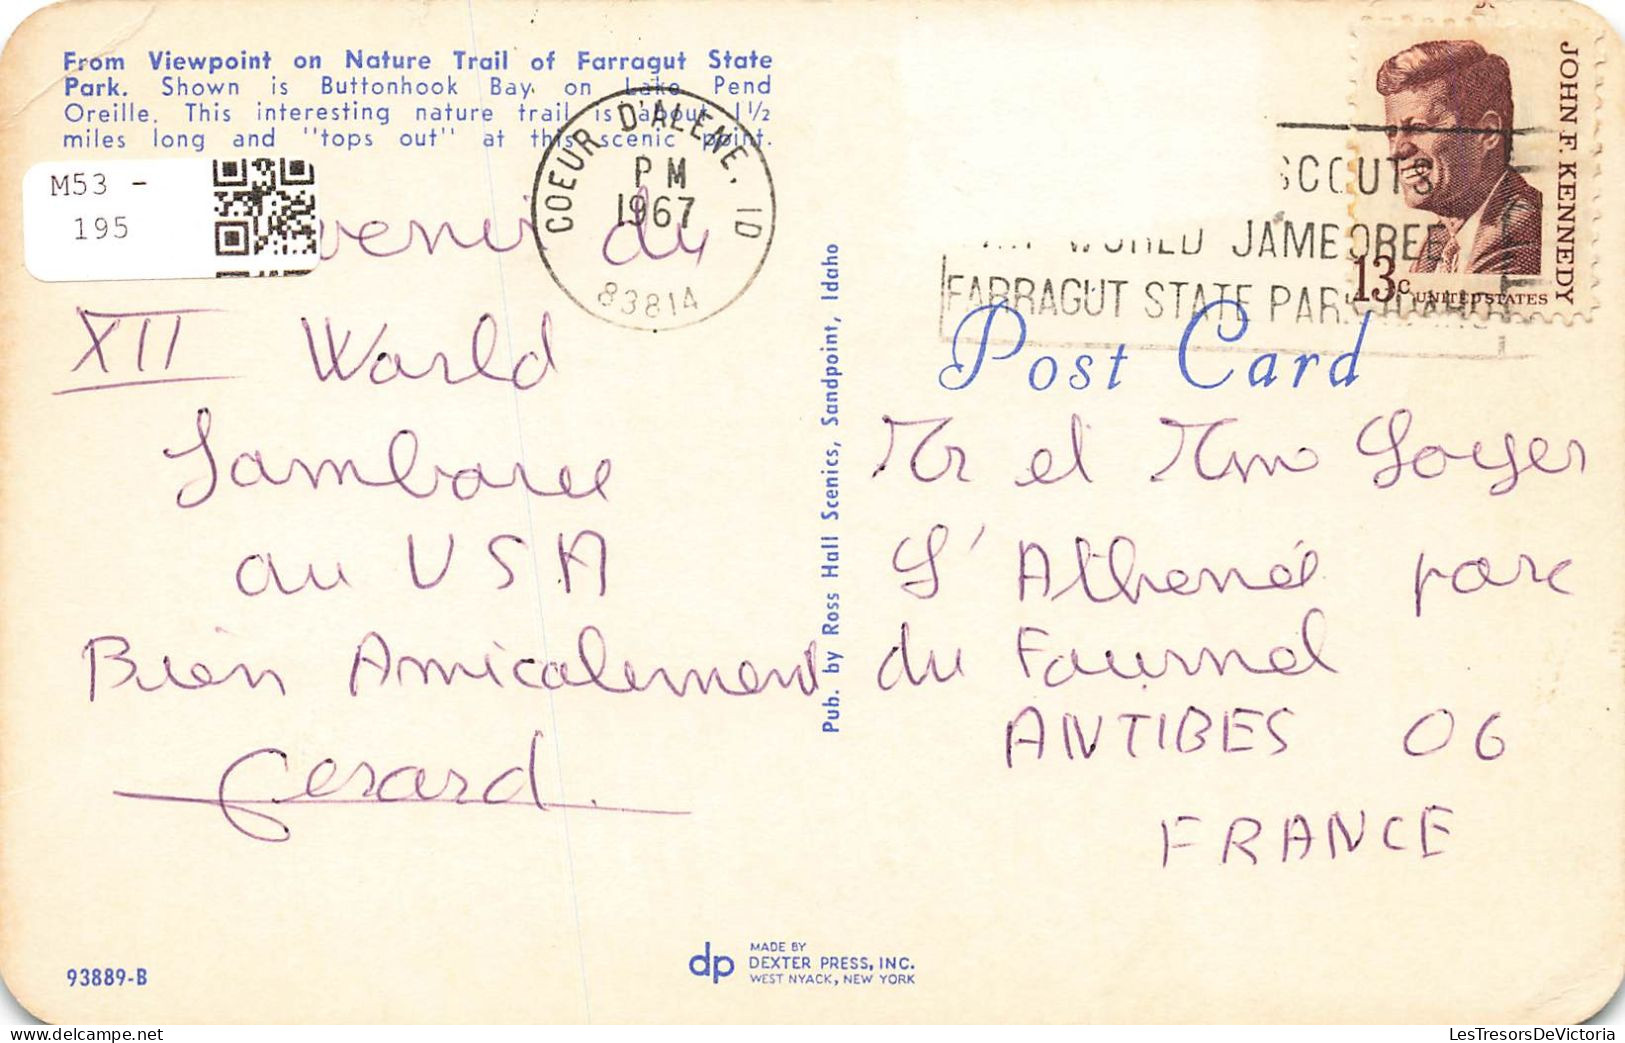 From Viewpoint on Nature Trail of Farragut State
Park. Shown is Buttonhook Bay on Lake Pend
Oreille. This interesting nature trail is about 1½
miles long and "tops out" at this scenic point.
M53 -
195
COEUR D'ALENE, ID
PM
1967
83814
SCOUTS
WORLD JAMBOREE
FARRAGUT STATE PARK IDAHO
JOHN F. KENNEDY
13c UNITED STATES
Post Card
venir du
XII World
Jamboree
au USA
Bien Amicalement
Gerard
Pub. by Ross Hall Scenics, Sandpoint, Idaho
Mr et Mme Loyer
L'Athené parc
du Fournel
ANTIBES 06
FRANCE
93889-B
dp
MADE BY
DEXTER PRESS, INC.
WEST NYACK, NEW YORK
LesTresorsDeVictoria